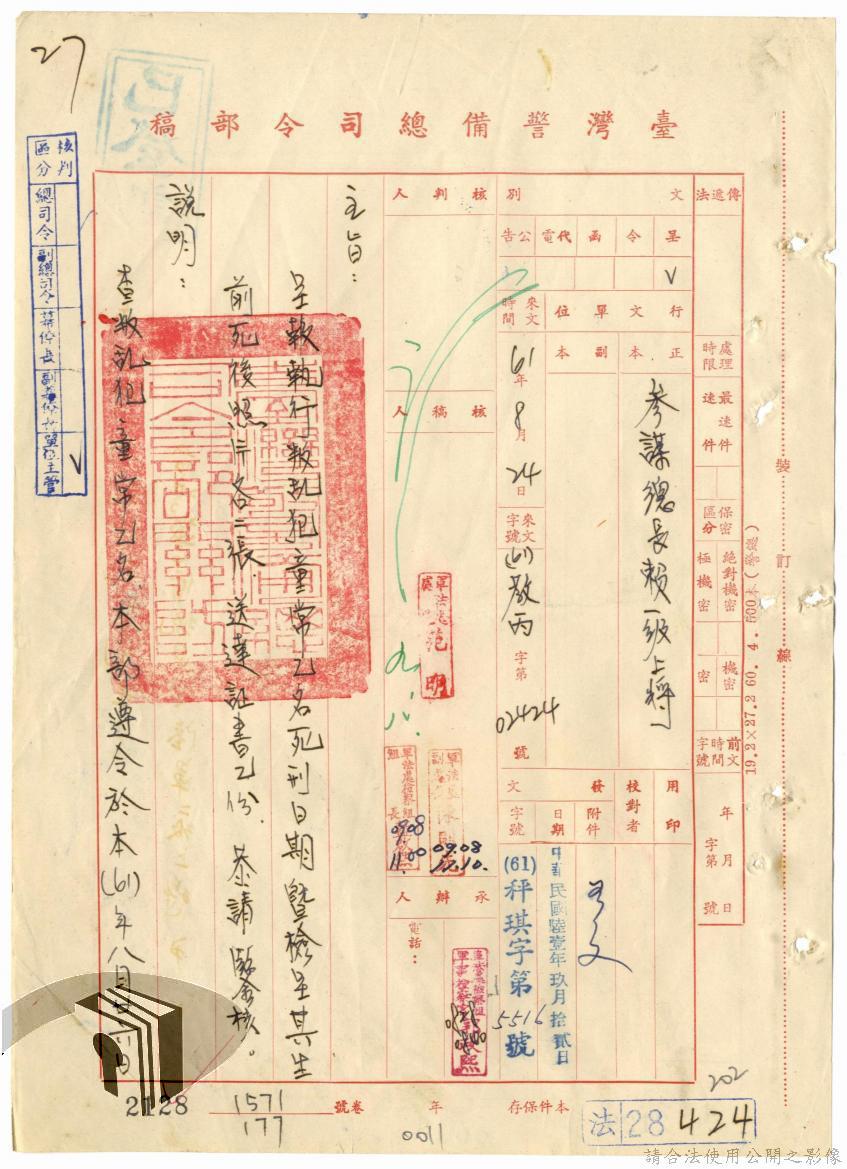 27
臺灣警備總司令部稿
核判區分
總司令
副總司令
單位主管
V
傳遞法
處理時限
最速件
速件
保密區分
絕對機密
極機密
機密
密
前文時間字號
年月日
字第
號
文別
呈
令
函
代電
公告
V
行文單位
正本
副本
參謀總長賴一級上將
來文時間
61年8月24日
來文字號
(61)教丙字第02424號
用印
校對者
發文
附件
日期
字號
中華民國陸壹年玖月拾貳日
(61)秤琪字第5516號
核判人
核稿人
九、八、
09.08
11.00
09.08
11.10.
承辦人
電話：
主旨：
呈報執行叛亂犯童常乙名死刑日期暨檢呈其生
前死後照片各二張、送達証書乙份、恭請鑒核。
說明：
查叛亂犯童常乙名、本部遵令於本(61)年八月廿六日
裝訂線
19.2×27.2 60.4.500本
2128
1571
177
卷號
年
本件保存
0011
202
法 28 424
請合法使用公開之影像